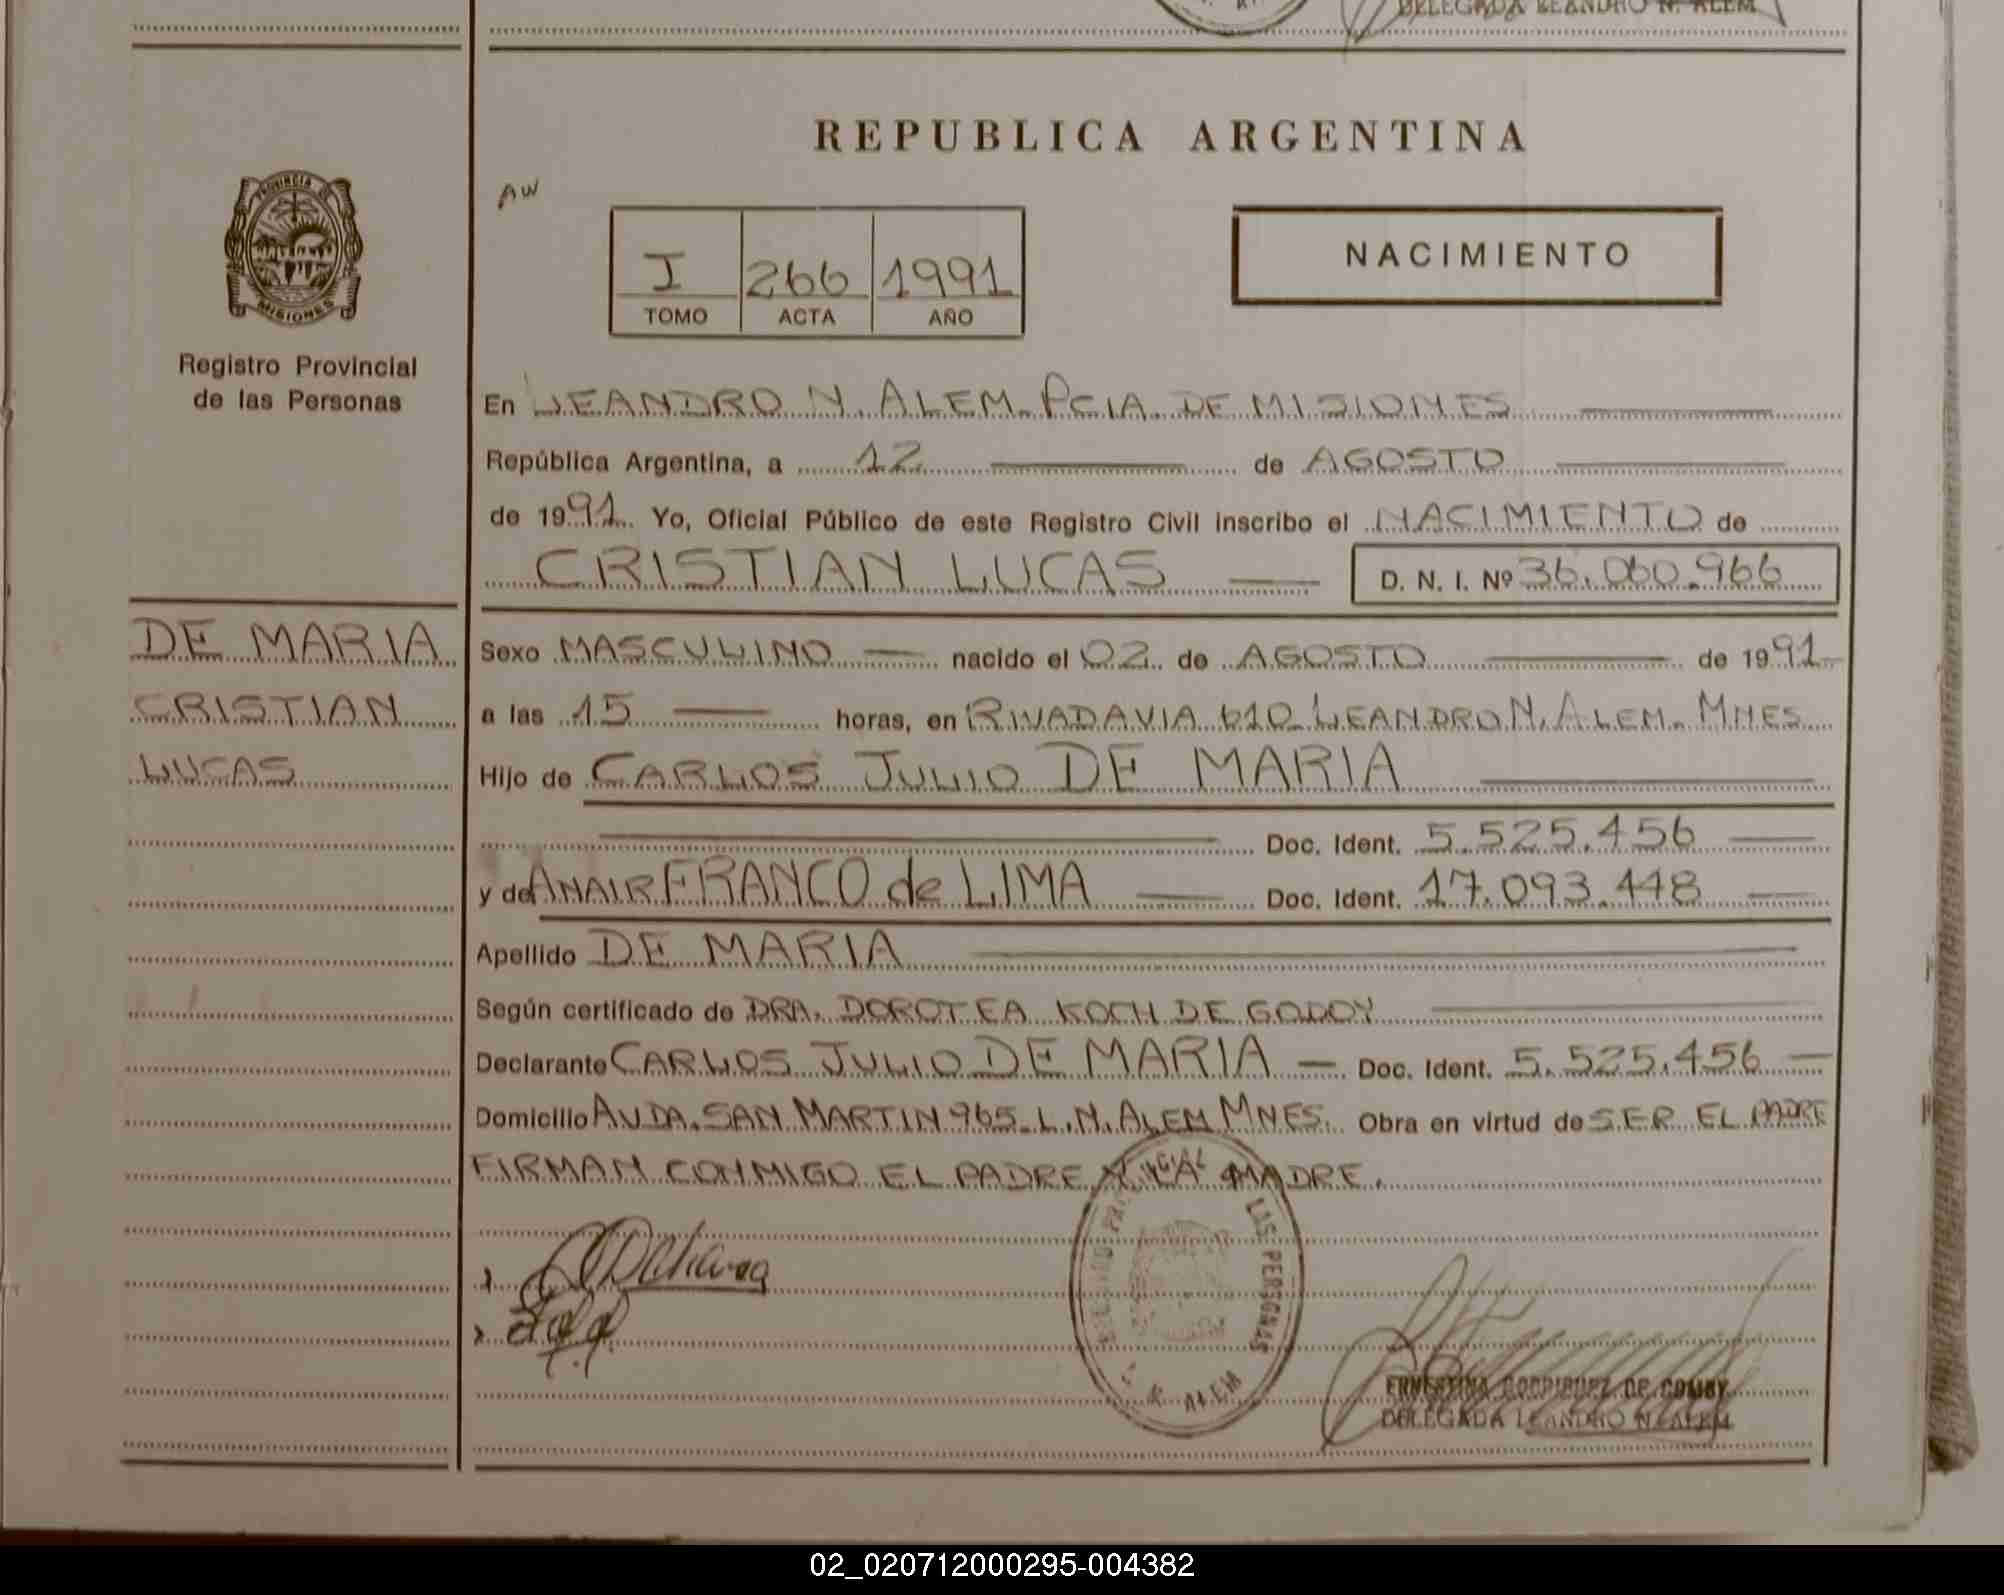 DELEGADA LEANDRO N. ALEM
REPUBLICA ARGENTINA
AW
PROVINCIA DE
MISIONES
Registro Provincial
de las Personas
I 266 1991
TOMO ACTA AÑO
NACIMIENTO
En LEANDRO N. ALEM. PCIA. DE MISIONES
República Argentina, a 12 de AGOSTO
de 1991. Yo, Oficial Público de este Registro Civil inscribo el NACIMIENTO de
CRISTIAN LUCAS D. N. I. Nº 36.060.966
DE MARIA
CRISTIAN
LUCAS
Sexo MASCULINO nacido el 02 de AGOSTO de 1991
a las 15 horas, en RIVADAVIA 610 LEANDRO N. ALEM. MNES
Hijo de CARLOS JULIO DE MARIA
Doc. Ident. 5.525.456
y de ANAIR FRANCO de LIMA Doc. Ident. 17.093.448
Apellido DE MARIA
Según certificado de DRA. DOROTEA KOCH DE GODOY
Declarante CARLOS JULIO DE MARIA Doc. Ident. 5.525.456
Domicilio AVDA. SAN MARTIN 965 L.N. ALEM MNES. Obra en virtud de SER EL PADRE
FIRMAN CONMIGO EL PADRE Y LA MADRE.
LAS PERSONAS
L. N. ALEM
ERNESTINA RODRIGUEZ DE COMBY
DELEGADA LEANDRO N. ALEM
02_020712000295-004382